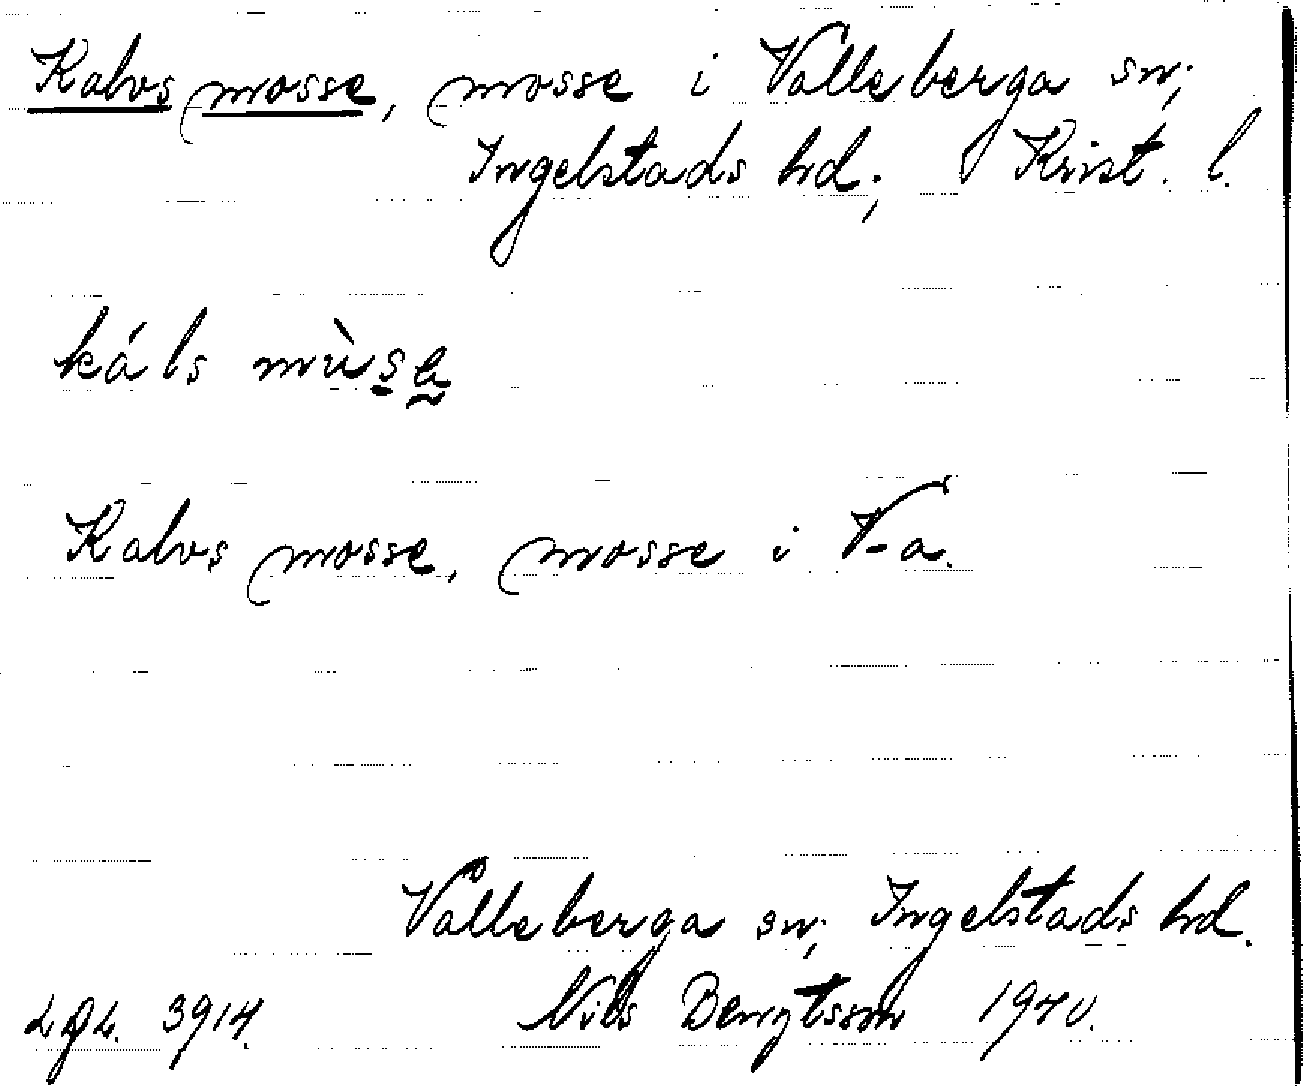 Kalvs mosse, mosse i Valleberga sn;
Ingelstads hd; Krist. l.
káls mùsa
Kalvs mosse, mosse i V-a.
Valleberga sn; Ingelstads hd.
Nils Bengtsson 1940.
3914.